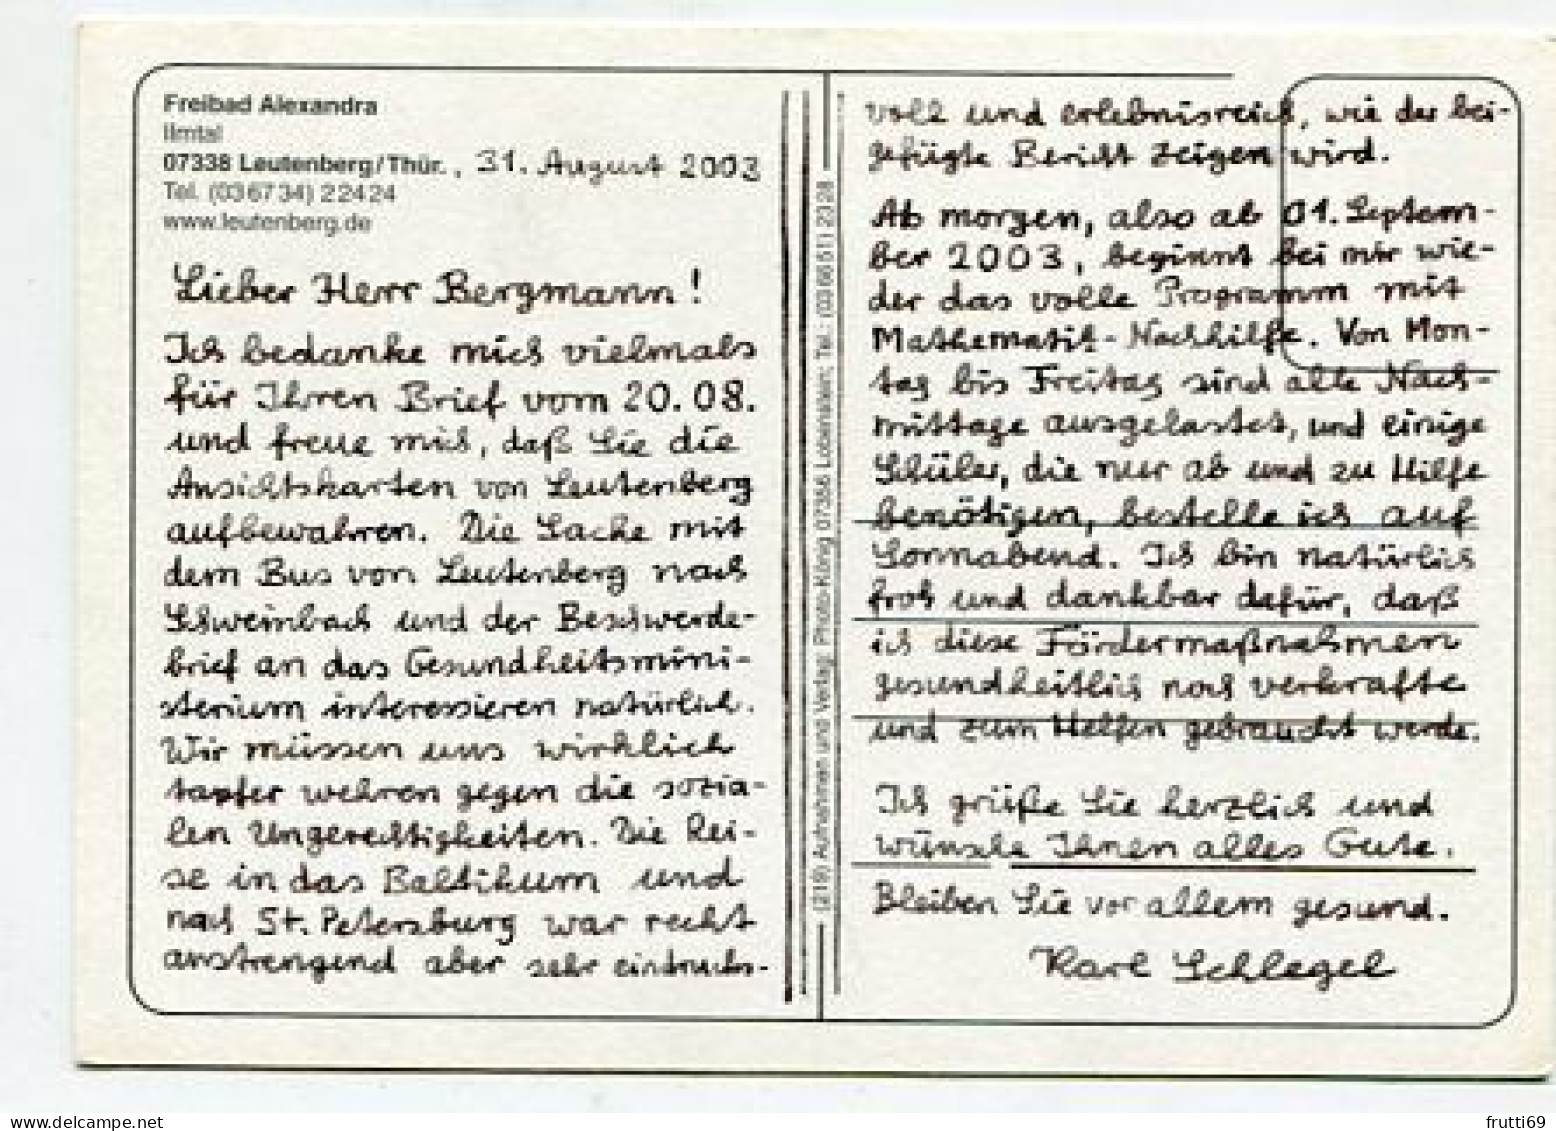 Freibad Alexandra
Ilmtal
07338 Leutenberg/Thür., 31. August 2003
Tel. (03 67 34) 2 24 24
www.leutenberg.de
Lieber Herr Bergmann!
Ich bedanke mich vielmals
für Ihren Brief vom 20.08.
und freue mich, daß Sie die
Ansichtskarten von Leutenberg
aufbewahren. Die Sache mit
dem Bus von Leutenberg nach
Schweinbach und der Beschwerde-
brief an das Gesundheitsmini-
sterium interessieren natürlich.
Wir müssen uns wirklich
tapfer wehren gegen die sozia-
len Ungerechtigkeiten. Die Rei-
se in das Baltikum und
nach St. Petersburg war recht
anstrengend aber sehr eindrucks-
(219) Aufnahmen und Verlag: Photo-König 07356 Lobenstein, Tel.: (03 66 51) 23 28
voll und erlebnisreich, wie der bei-
gefügte Bericht zeigen wird.
Ab morgen, also ab 01. Septem-
ber 2003, beginnt bei mir wie-
der das volle Programm mit
Mathematik-Nachhilfe. Von Mon-
tag bis Freitag sind alle Nach-
mittage ausgelastet, und einige
Schüler, die nur ab und zu Hilfe
benötigen, bestelle ich auf
Sonnabend. Ich bin natürlich
froh und dankbar dafür, daß
ich diese Fördermaßnahmen
gesundheitlich noch verkrafte
und zum Helfen gebraucht werde.
Ich grüße Sie herzlich und
wünsche Ihnen alles Gute.
Bleiben Sie vor allem gesund.
Karl Schlegel
frutti69